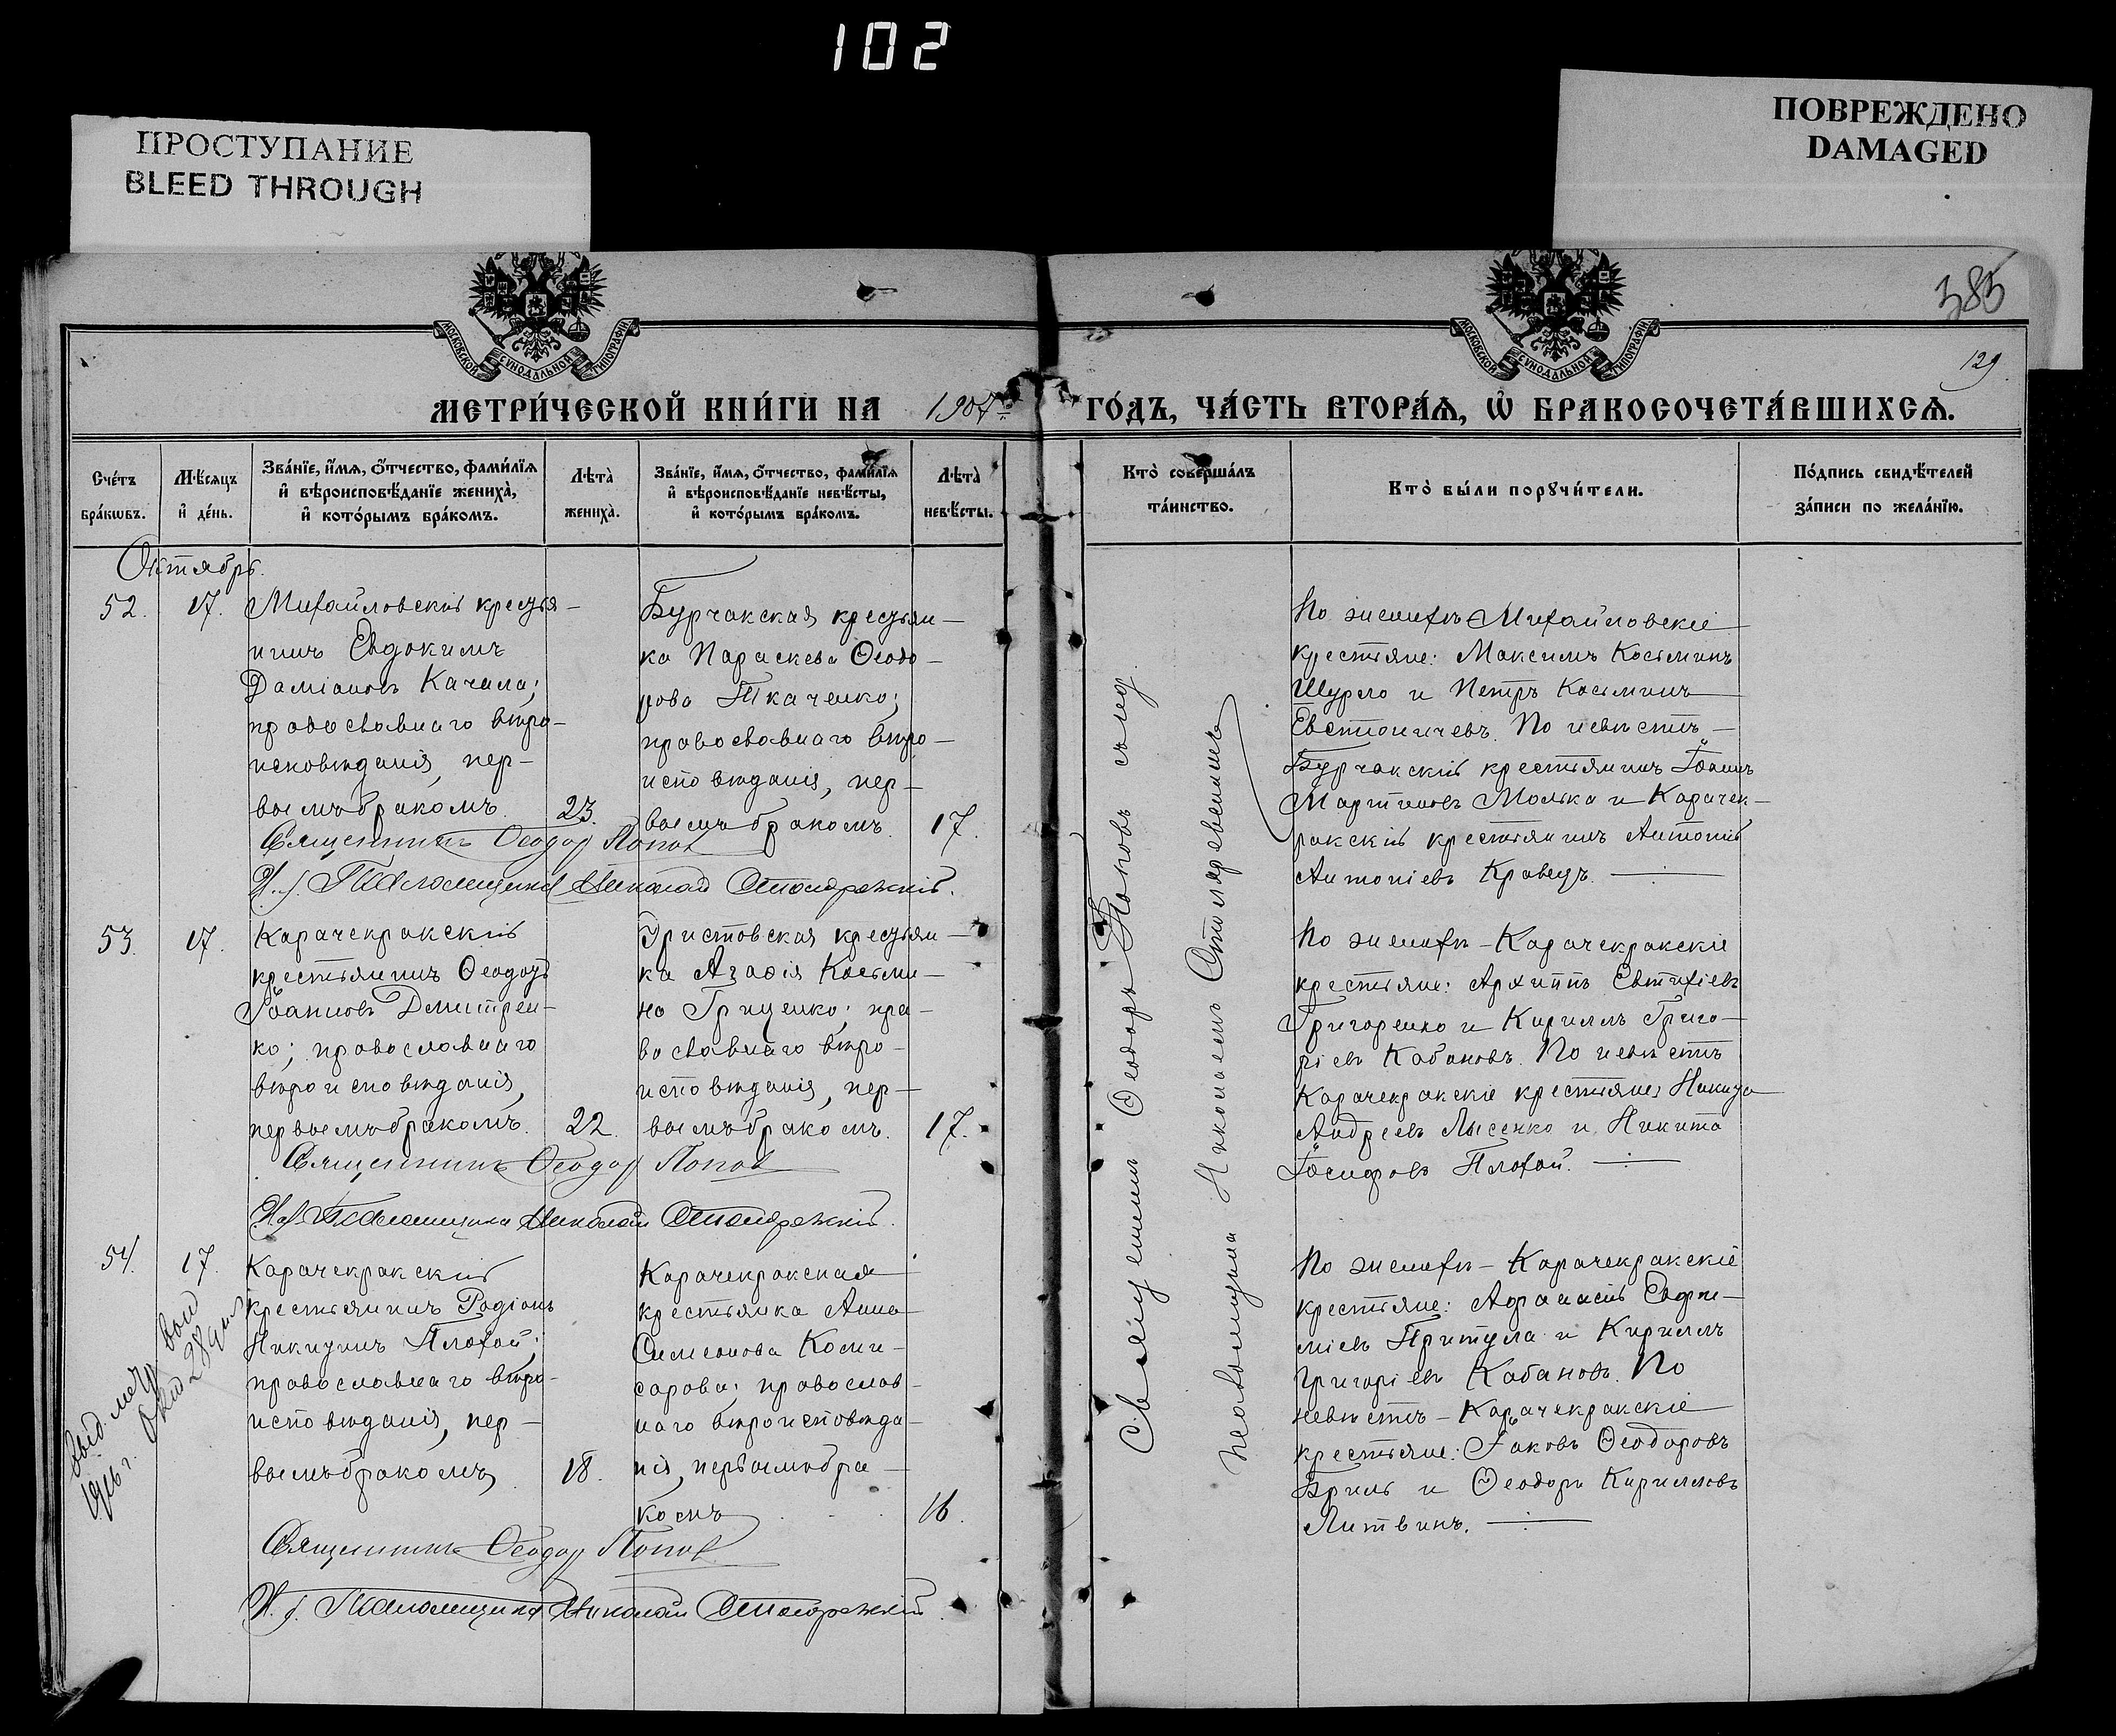 102
ПРОСТУПАНИЕ
BLEED THROUGH
ПОВРЕЖДЕНО
DAMAGED
385
129
МОСКОВСКОЙ СѴНОДАЛЬНОЙ ТИПОГРАФІИ
МОСКОВСКОЙ СѴНОДАЛЬНОЙ ТИПОГРАФІИ
МЕТРИ́ЧЕСКОЙ КНИ́ГИ НА 1907й ГО́ДЪ, ЧА́СТЬ ВТОРА́Ѧ, Ѡ҆ БРАКОСОЧЕТА́ВШИХСѦ.
Сче́тъ бра́кѡвъ.
Мѣ́сяцъ и҆ де́нь.
Зва́нїе, и҆́мѧ, ѻ҆́тчество, фами́лїѧ
и҆ вѣроисповѣ́данїе жениха̀,
и҆ кото́рымъ бра́комъ.
Лѣта̀ жениха̀.
Зва́нїе, и҆́мѧ, ѻ҆́тчество, фами́лїѧ
и҆ вѣроисповѣ́данїе невѣ́сты,
и҆ кото́рымъ бра́комъ.
Лѣта̀ невѣ́сты.
Кто̀ соверша́лъ
та́инство.
Кто̀ бы́ли порꙋчи́тели.
По́дпись свидѣ́телей
за́писи по жела́нїю.
Октябрь.
52. 17.
Михайловскій кресть-
нинъ Евдокимъ
Даміановъ Качала;
православнаго вѣро-
исповѣданія, пер-
вымъ бракомъ. 23.
Бурчакская крестьян-
ка Параскева Ѳеодо-
рова Ткаченко;
православнаго вѣро-
исповѣданія, пер-
вымъ бракомъ. 17.
Священникъ Ѳеодоръ Попов
И. д. Псаломщика Николай
По женихѣ Михайловскіе
крестьяне: Максимъ Косминъ
Шурло и Петръ Косминъ
Евстигнеевъ. По невѣстѣ -
Бурчакскій крестьянинъ Іоаннъ
Мартиновъ Молька и Карачек-
ракскій крестьянинъ Антоній
Антоніевъ Кравецъ.
53. 17.
Карачекракскій
крестьянинъ Ѳеодоръ
Іоанновъ Дмитрен-
ко; православнаго
вѣроисповѣданія,
первымъ бракомъ. 22.
Эристовская крестьян-
ка Агафія Косми-
на Гриценко; пра-
вославнаго вѣро-
исповѣданія, пер-
вымъ бракомъ. 17.
Священникъ Ѳеодоръ Попов
И. д. Псаломщика Николай
По женихѣ - Карачекракскіе
крестьяне: Архиппъ Евтихіевъ
Григоренко и Кириллъ Григо-
ріевъ Кабановъ. По невѣстѣ
Карачекракскіе крестьяне: Никита
Андреевъ Лысенко и Никита
Іосифовъ Плохой.
54. 17.
Карачекракскій
крестьянинъ Родіонъ
Никитинъ Плохой;
православнаго вѣро-
исповѣданія, пер-
вымъ бракомъ, 18.
Карачекракская
крестьянка Анна
Симеонова Коми-
сарова; православ-
наго вѣроисповѣда-
нія, первымъ бра-
комъ 16.
Священникъ Ѳеодоръ Попов
И. д. Псаломщика Николай
По женихѣ - Карачекракскіе
крестьяне: Афанасій Евфи-
міевъ Притула и Кириллъ
Григоріевъ Кабановъ. По
невѣстѣ - Карачекракскіе
крестьяне: Іаковъ Ѳеодоровъ
Бриль и Ѳеодоръ Кирилловъ
Литвинъ.
1916 г.
Священникъ Ѳеодоръ Поповъ съ и.д.
псаломщика Николаемъ